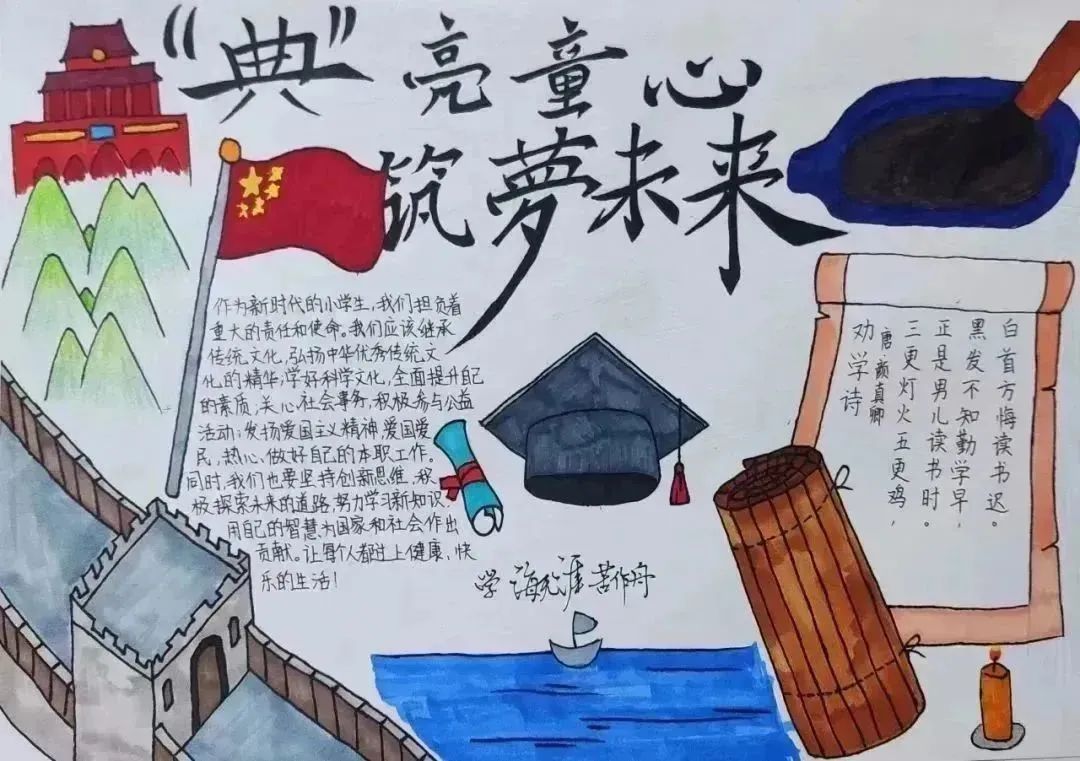 “典”亮童心
筑夢未来
作为新时代的小学生,我们担负着
重大的责任和使命。我们应该继承
传统文化,弘扬中华优秀传统文
化的精华;学好科学文化,全面提升自己
的素质;关心社会事务,积极参与公益
活动;发扬爱国主义精神,爱国爱
民,热心,做好自己的本职工作。
同时,我们也要坚持创新思维,积
极探索未来的道路,努力学习新知识,
用自己的智慧为国家和社会作出
贡献。让每个人都过上健康、快
乐的生活!
学海无涯苦作舟
劝学诗
唐·颜真卿
三更灯火五更鸡,
正是男儿读书时。
黑发不知勤学早,
白首方悔读书迟。